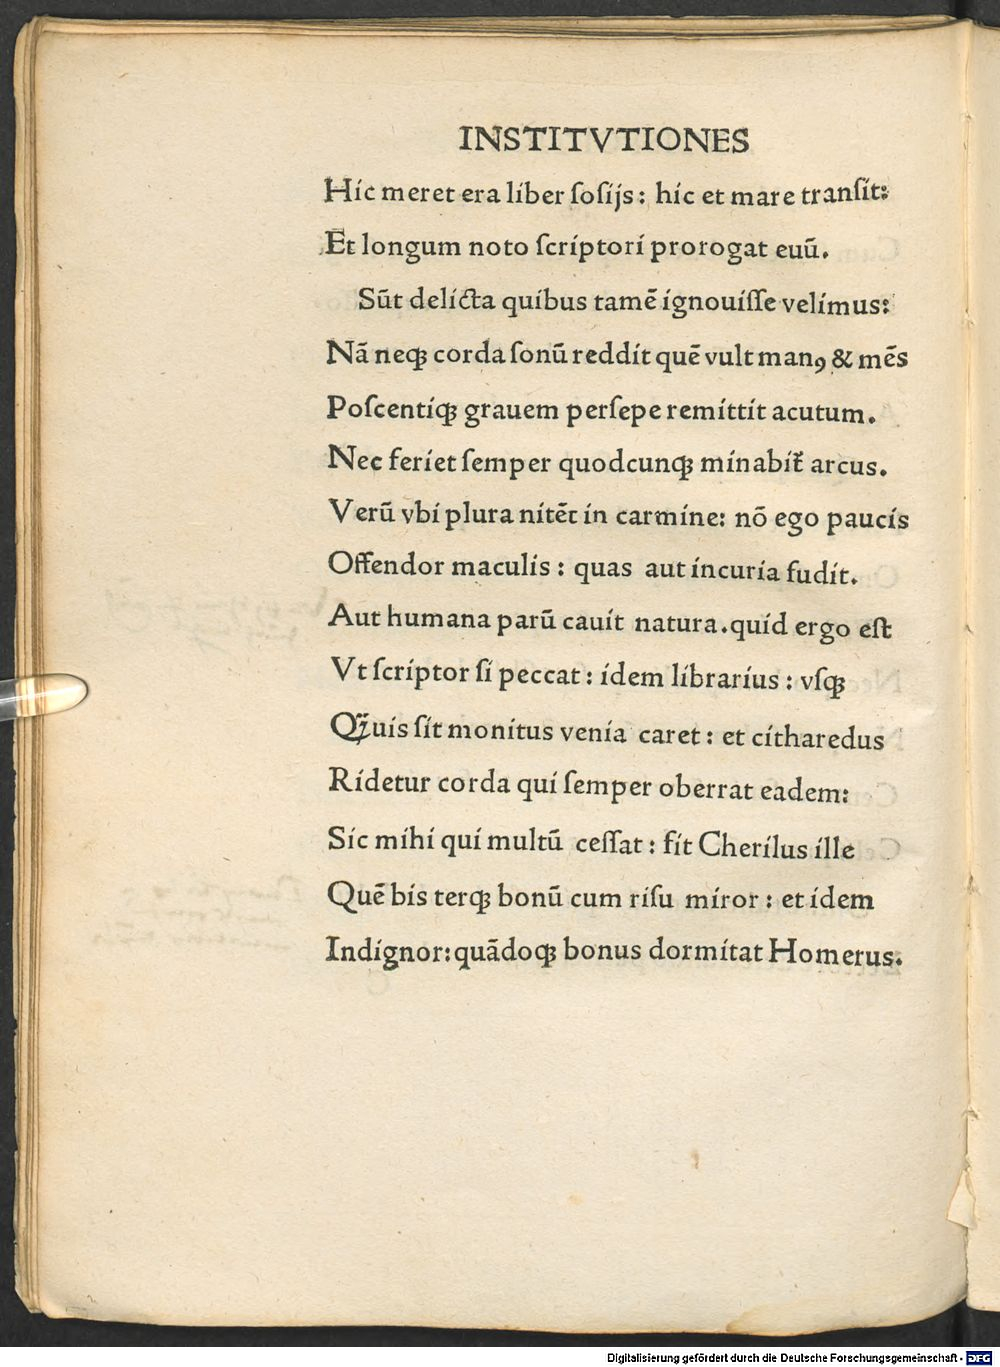 INSTITVTIONES
Hic meret era liber ſoſijs: hic et mare tranſit:
Et longum noto ſcriptori prorogat euũ.
Sũt delicta quibus tamẽ ignouiſſe velimus:
Nã neqꝫ corda ſonũ reddit quẽ vult manꝯ & mẽs
Poſcentiqꝫ grauem perſepe remittit acutum.
Nec feriet ſemper quodcunqꝫ minabit᷑ arcus.
Verũ vbi plura nitẽt in carmine: nõ ego paucis
Offendor maculis: quas aut incuria fudit.
Aut humana parũ cauit natura.quid ergo eſt
Vt ſcriptor ſi peccat: idem librarius: vſqꝫ
Qꝫ̃uis ſit monitus venia caret: et citharedus
Ridetur corda qui ſemper oberrat eadem:
Sic mihi qui multũ ceſſat: fit Cherilus ille
Quẽ bis terqꝫ bonũ cum riſu miror: et idem
Indignor: quãdoqꝫ bonus dormitat Homerus.
Digitalisierung gefördert durch die Deutsche Forschungsgemeinschaft - DFG